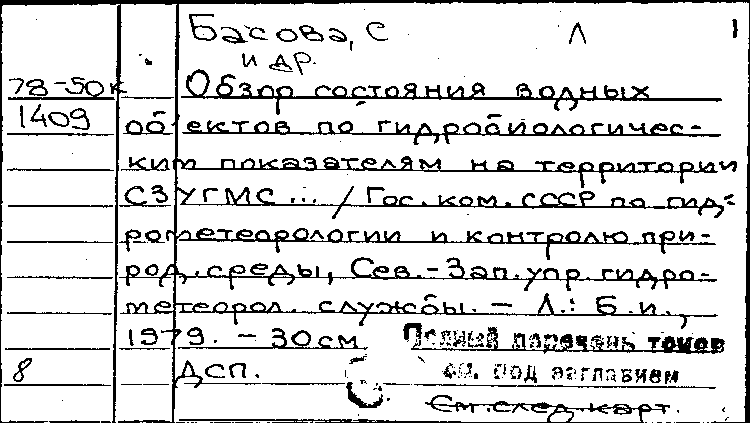 Басова, С Л 1
и др.
78-50к Обзор состояния водных
1409 объектов по гидробиологичес-
ким показателям на территории
СЗУГМС ... / Гос. ком. СССР по гид-
рометеорологии и контролю при-
род. среды, Сев.-Зап. упр. гидро-
метеорол. службы. - Л.: Б.и.,
1979. - 30 см Полный перечень томов
8 ДСП. см. под заглавием
См. след. карт.